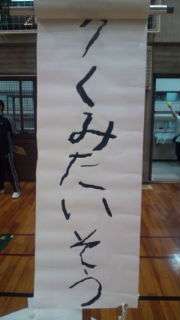 くみたいそう